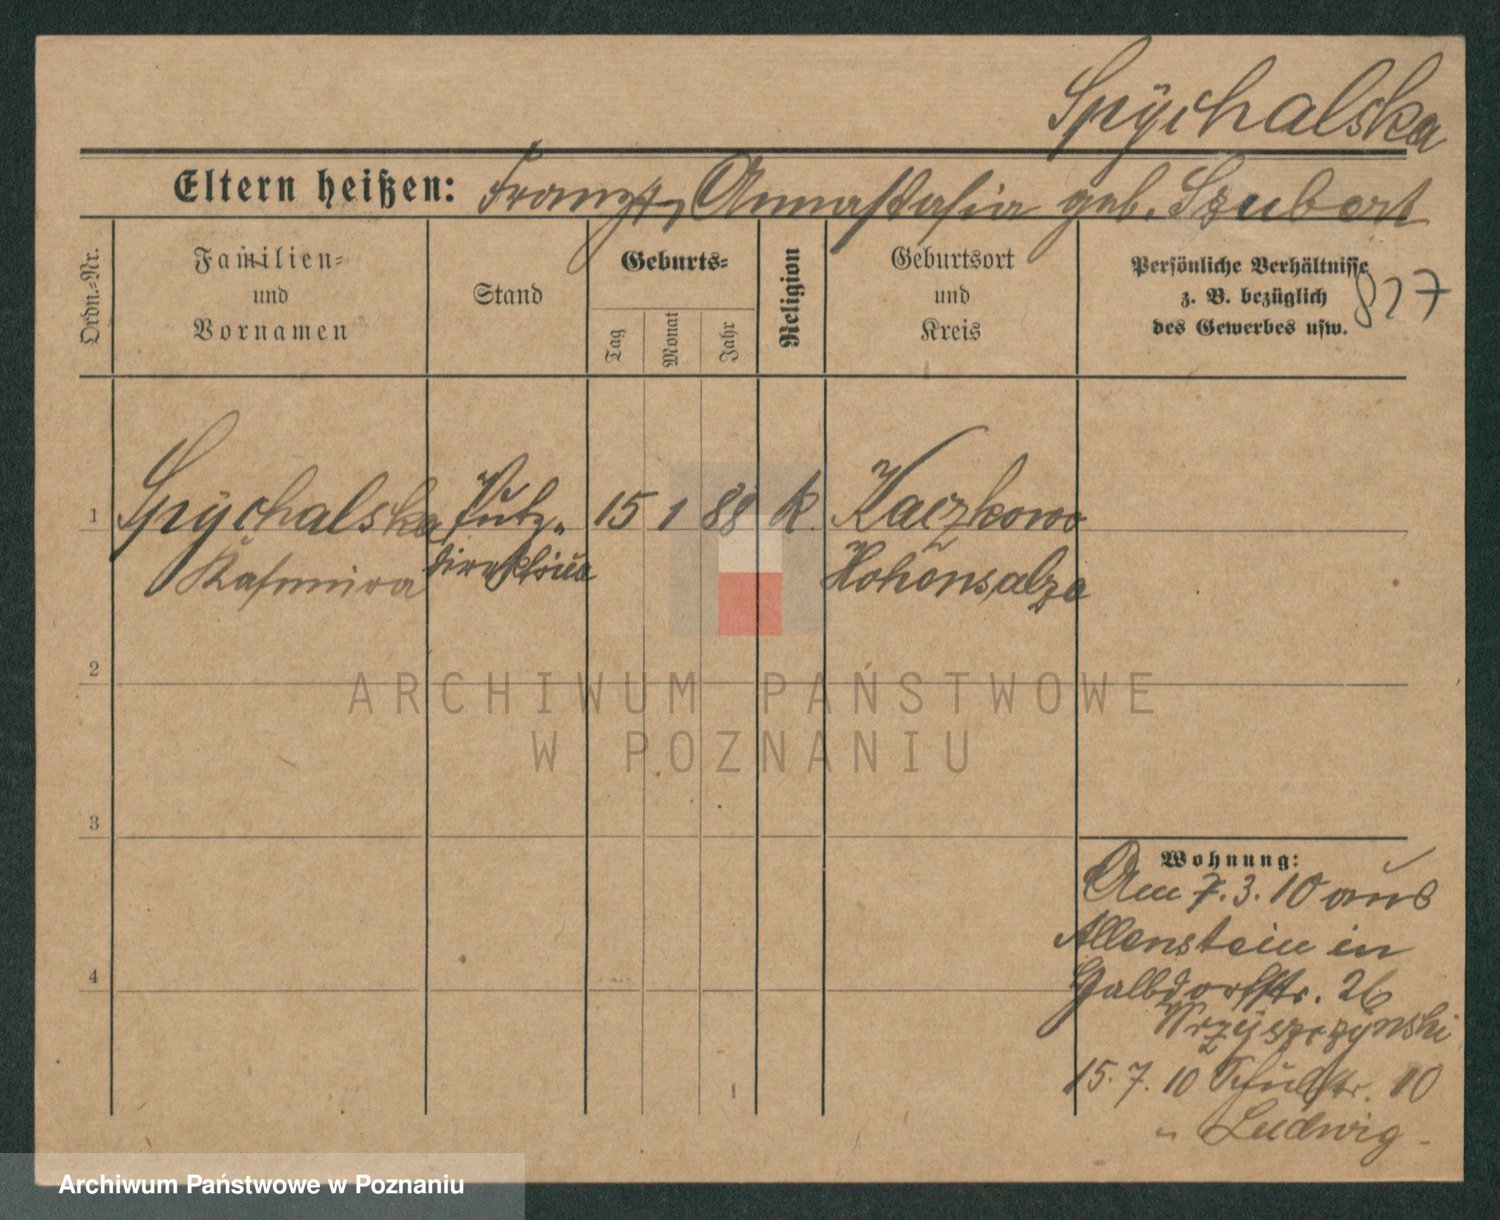 Spÿchalska
Eltern heißen: Franz, Annastasia geb. Szubert
Ordn.-Nr.
Familien-
und
Vornamen
Stand
Geburts-
Tag
Monat
Jahr
Religion
Geburtsort
und
Kreis
Persönliche Verhältnisse
z. B. bezüglich
des Gewerbes usw.
827
1 Spÿchalska Putz- 15 1 88 k. Kaczkowo
Kasimira direktrice Hohensalza
2
3
4
Wohnung:
Am 7.3.10 aus
Allenstein in
Halbdorfstr. 26
15.7.10 Schulstr. 10
Ludwig
ARCHIWUM PAŃSTWOWE
W POZNANIU
Archiwum Państwowe w Poznaniu